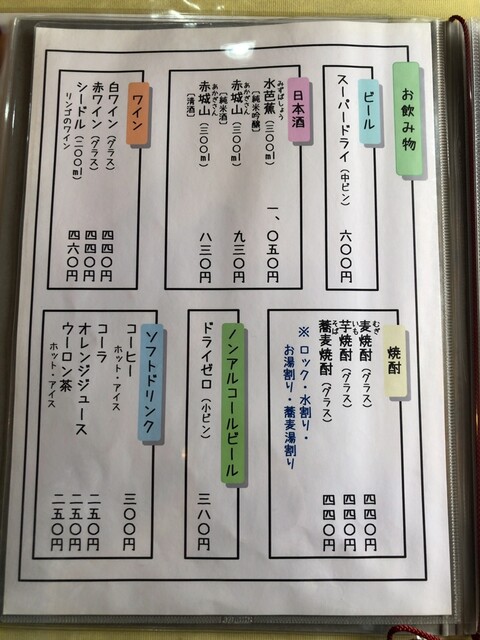 お飲み物
ビール
スーパードライ（中ビン） 六〇〇円
日本酒
みずばしょう
水芭蕉（三〇〇ml） 一、〇五〇円
［純米吟醸］
あかぎさん
赤城山（三〇〇ml） 九三〇円
［純米酒］
あかぎさん
赤城山（三〇〇ml） 八三〇円
［清酒］
ワイン
白ワイン（グラス） 四四〇円
赤ワイン（グラス） 四四〇円
シードル（二〇〇ml） 四六〇円
リンゴのワイン
焼酎
むぎ
麦焼酎（グラス） 四四〇円
いも
芋焼酎（グラス） 四四〇円
そば
蕎麦焼酎（グラス） 四四〇円
※ ロック・水割り・
お湯割り・蕎麦湯割り
ノンアルコールビール
ドライゼロ（小ビン） 三八〇円
ソフトドリンク
コーヒー 三〇〇円
ホット・アイス
コーラ 二五〇円
オレンジジュース 二五〇円
ウーロン茶 二五〇円
ホット・アイス